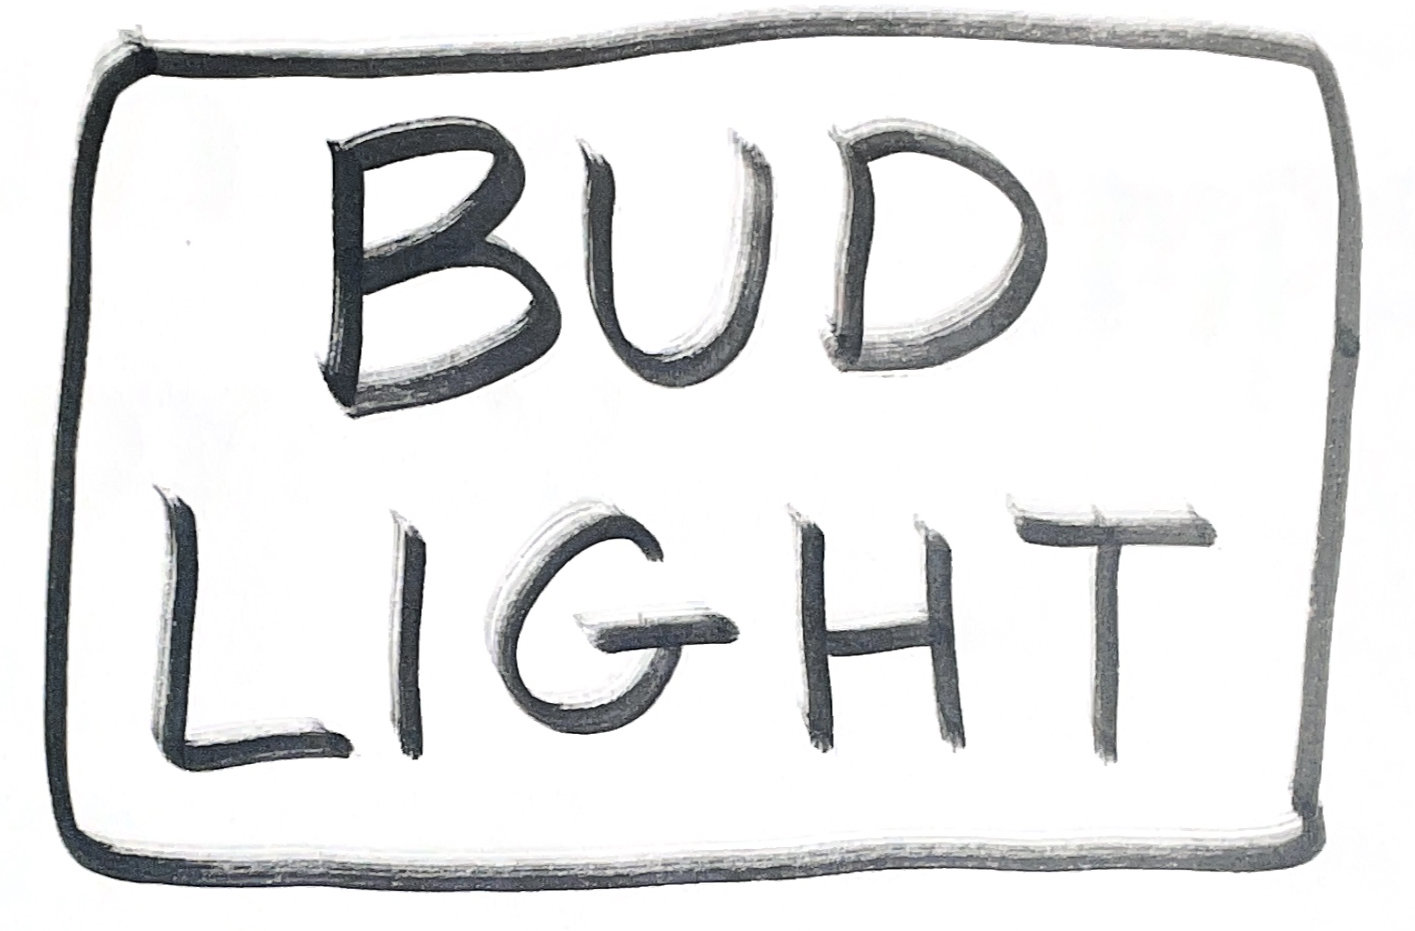 BUD
LIGHT